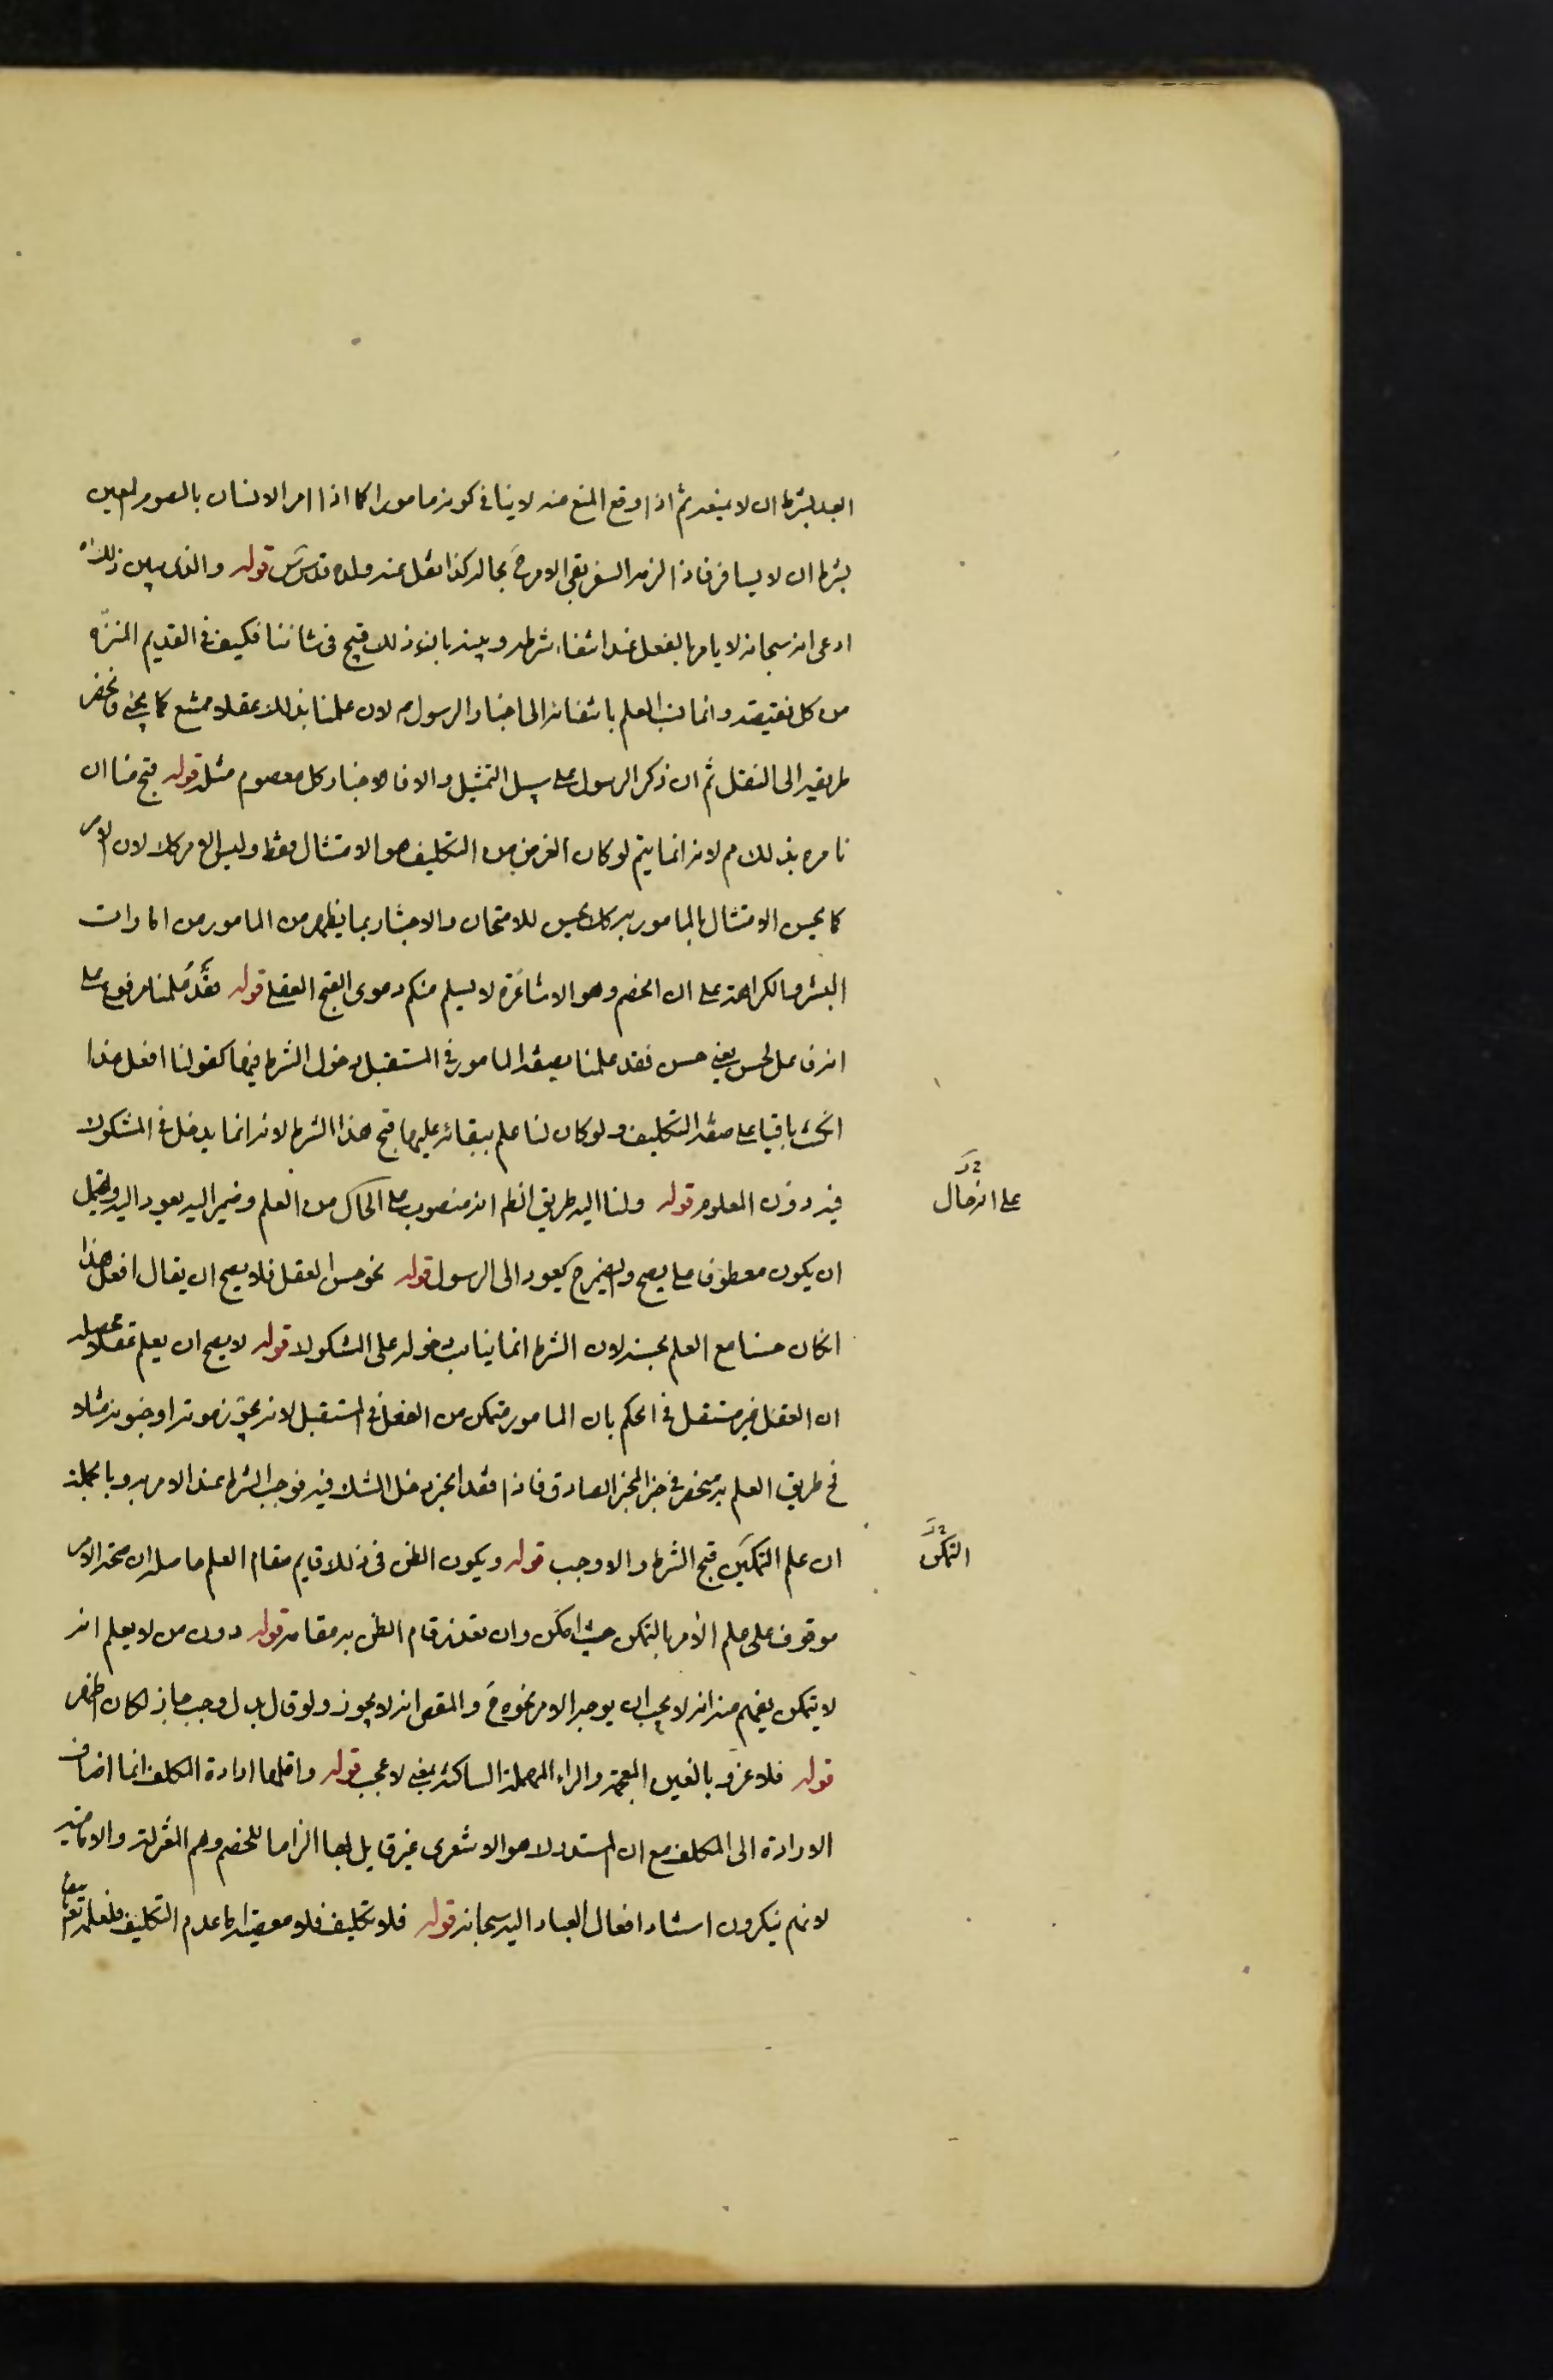 العبد بشرط ان لا يمنعه ثم اذا وقع المنع منه لا ينافي كونه مامورا كما اذا امر الانسان بالصوم لمعين
بشرط ان لا يسافر فاذا لزمه السفر بقي الامر ح بحاله كذا نقل عنه ولده قدس سره قوله والذي يبين ذلك اه
ادعى انه سبحانه لا يامر بالفعل عند انتفاء شرطه وبينه بان ذلك قبيح في شاننا فكيف في القديم المنزّه
من كل نقيصة وانما نسب العلم بانتفائه الى اخبار الرسول ص لان علمنا بذلك عقلا ممتنع كما يجئ وانحصر
طريقه الى النقل ثم ان ذكر الرسول على سبيل التمثيل والا فالاخبار كل معصوم مثله قوله قبح منا ان
نامره بذلك مم لانه انما يتم لو كان الغرض من التكليف هو الامتثال فقط وليس الامر كك لان الامر
كما يحسن الامتثال بالمامور به كك يحسن للامتحان والاختبار بما يظهر من المامور من امارات
البشر والكراهة على ان الخصم وهو الاشاعرة لا يسلم منكم دعوى القبح العقلي قوله فقد علمنا مرفوع على
انه فاعل لحسن يعني حسن فقد علمنا بصفة المامور في المستقبل دخول الشرط فيها كقولنا افعل هذا
ان كنت باقيا على صفة التكليف ولو كان لنا علم ببقائه عليها قبح هذا الشرط لانه انما يدخل في المشكوك
فيه دون المعلوم قوله ولنا اليه طريق انظم انه منصوب على الحال من العلم وضمير اليه يعود اليه ويحتمل
على انه حال
ان يكون معطوفا على يصح والضمير ح يعود الى الرسول قوله نحو حسن العقل فلا يصح ان يقال افعل هذا
ان كان حسنا مع العلم بحسنه لان الشرط انما يناسب دخوله على المشكوك قوله لا يصح ان يعلم عقلا محصله
ان العقل غير مستقل في الحكم بان المامور متمكن من الفعل في المستقبل لانه يجوز موته او جنونه مثلا
فح طريق العلم به منحصر في خبر المخبر الصادق فاذا فقد الخبر دخل الشك فيه فوجب الشرط عند الامر به وبالجملة
ان علم التمكين قبح الشرط والا وجب قوله ويكون الظن في ذلك قايم مقام العلم حاصله ان صحة الامر
التمكن
موقوف على علم الآمر بالتمكن حيث امكن وان تعذر قام الظن به مقامه قوله دون من لا يعلم انه
لا يتمكن يفهم منه انه لا يجب ان يوجه الامر نحوه ح والمقصود انه لا يجوز ولو قال بدل وجب جاز لكان اظهر
قوله فلا غرو بالغين المعجمة والراء المهملة الساكنة يعني لا عجب قوله واقلها ارادة المكلف انما اضاف
الارادة الى المكلف مع ان المستدل هو الاشعري غير قايل بها الزاما للخصم وهم المعتزلة والامامية
لانهم ينكرون استناد افعال العباد اليه سبحانه قوله فلا تكليف فلا معصية اما عدم التكليف